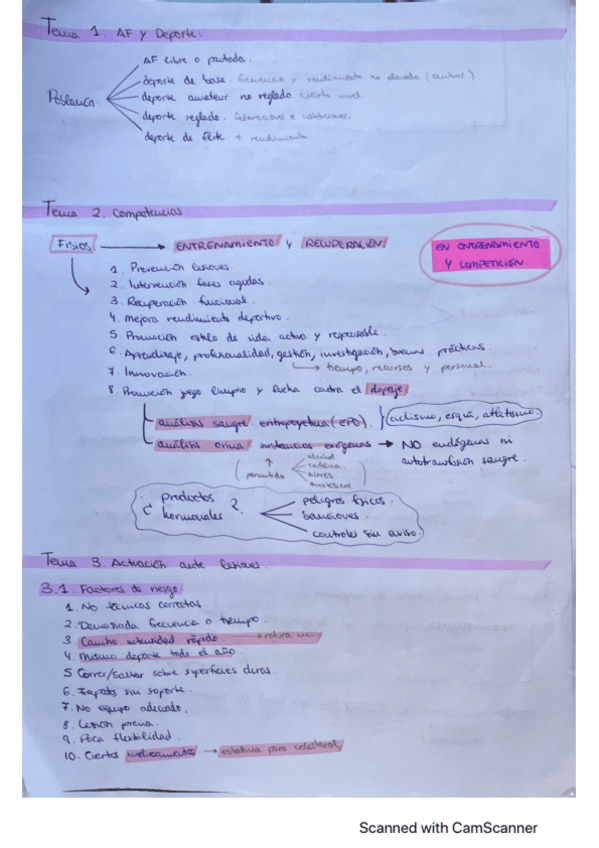 Tema 1. AF y Deporte.
AF libre o pautada.
deporte de base. frecuencia y rendimiento no elevado (control).
Población
deporte amateur no reglado. cierto nivel.
deporte reglado. federaciones e instituciones.
deporte de élite. + rendimiento
Tema 2. Competencias
FISIOS → ENTRENAMIENTO y RECUPERACIÓN
EN ENTRENAMIENTO
Y COMPETICIÓN.
1. Prevención lesiones.
2. Intervención fases agudas.
3. Recuperación funcional.
4. Mejora rendimiento deportivo.
5. Promoción estilo de vida activa y responsable.
6. Aprendizaje, profesionalidad, gestión, investigación, buenas prácticas.
→ tiempo, recursos y personal.
7. Innovación.
8. Promoción juego limpio y lucha contra el dopaje
análisis sangre. (EPO). ciclismo, esquí, atletismo.
análisis orina sustancias exógenas → NO endógenas ni
autotransfusión sangre.
permitido
alcohol
cafeína
AINES
productos
hormonales ?
peligros físicos.
Sanciones.
controles sin aviso.
Tema 3. Actuación ante lesiones.
3.1. Factores de riesgo
1. No técnicas correctas
2. Demasiada frecuencia o tiempo.
3 Cambio intensidad rápido. → rotura
4. Mismo deporte todo el año.
5 Correr/saltar sobre superficies duras.
6. Zapatos sin soporte.
7. No equipo adecuado.
8. Lesión previa.
9. Poca flexibilidad.
10. Ciertos medicamentos → estatina para colesterol.
Scanned with CamScanner